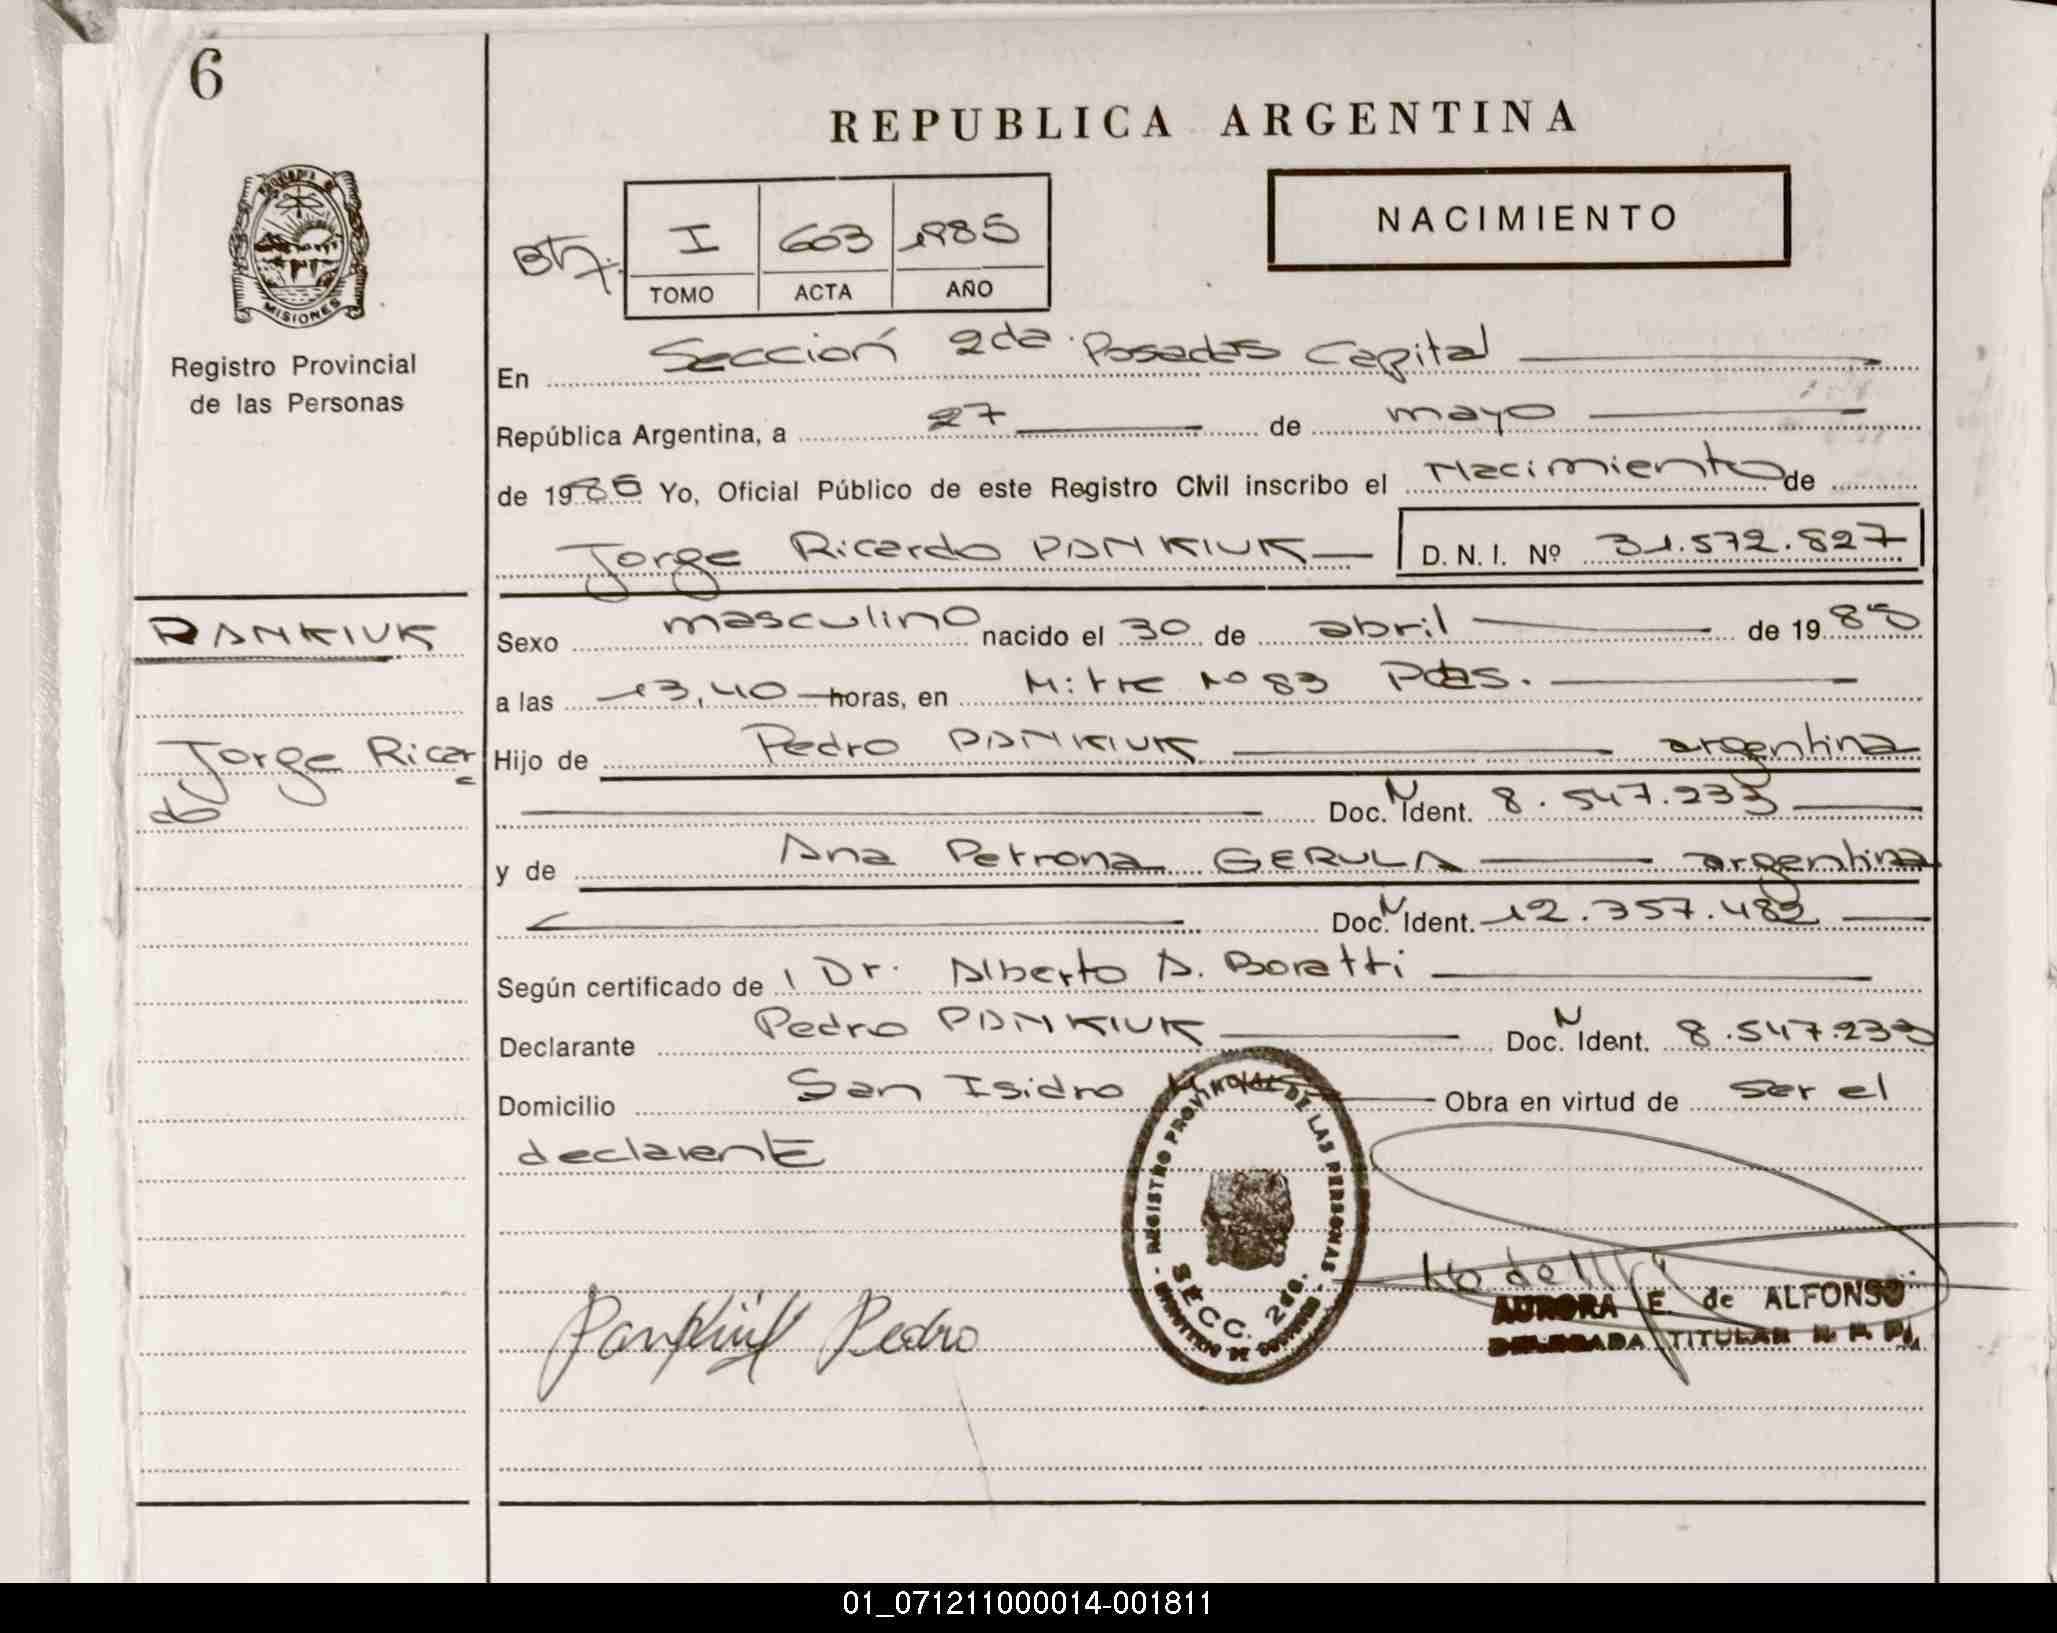 6
REPUBLICA ARGENTINA
NACIMIENTO
I 603 1985
TOMO ACTA AÑO
MISIONES
Registro Provincial
de las Personas
En Sección 2da. Posadas Capital
República Argentina, a 27 de mayo
de 1985 Yo, Oficial Público de este Registro Civil inscribo el Nacimiento de
Jorge Ricardo PANKIUK D.N.I. Nº 31.572.827
PANKIUK
Sexo masculino nacido el 30 de abril de 1985
a las 13,40 horas, en Mitre Nº 83 Pdas.
Jorge Ricar
do
Hijo de Pedro PANKIUK argentina
Doc. N Ident. 8.547.233
y de Ana Petrona GERULA argentina
Doc. N Ident. 12.357.482
Según certificado de Dr. Alberto A. Boratti
Declarante Pedro PANKIUK Doc. N Ident. 8.547.233
Domicilio San Isidro Obra en virtud de ser el
declarante
REGISTRO PROVINCIAL DE LAS PERSONAS
SECC. 2da.
MINISTERIO DE GOBIERNO
Pankiuk Pedro
AURORA E. de ALFONSO
DELEGADA TITULAR R. P. P.
01_071211000014-001811